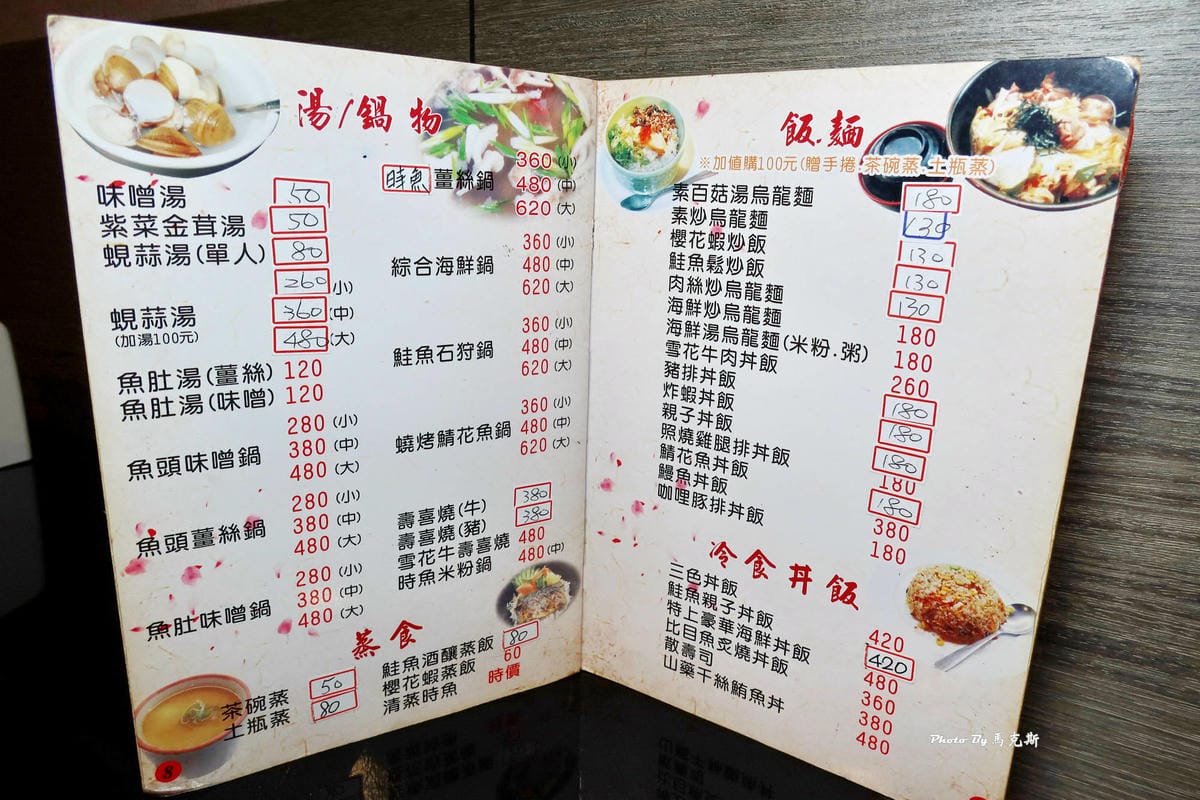 湯/鍋物
味噌湯 50
紫菜金茸湯 50
蜆蒜湯(單人) 80
260(小)
蜆蒜湯 360(中)
(加湯100元) 480(大)
魚肚湯(薑絲) 120
魚肚湯(味噌) 120
280(小)
魚頭味噌鍋 380(中)
480(大)
280(小)
魚頭薑絲鍋 380(中)
480(大)
280(小)
魚肚味噌鍋 380(中)
480(大)
360(小)
時魚薑絲鍋 480(中)
620(大)
360(小)
綜合海鮮鍋 480(中)
620(大)
360(小)
鮭魚石狩鍋 480(中)
620(大)
360(小)
蟯烤鯖花魚鍋 480(中)
620(大)
壽喜燒(牛) 380
壽喜燒(豬) 380
雪花牛壽喜燒 480
時魚米粉鍋 480(中)
蒸食
茶碗蒸 50
土瓶蒸 80
鮭魚酒釀蒸飯 80
櫻花蝦蒸飯 60
清蒸時魚 時價
8
飯.麵
※加值購100元(贈手捲.茶碗蒸.土瓶蒸)
素百菇湯烏龍麵 180
素炒烏龍麵 130
櫻花蝦炒飯 130
鮭魚鬆炒飯 130
肉絲炒烏龍麵 130
海鮮炒烏龍麵 180
海鮮湯烏龍麵(米粉.粥) 180
雪花牛肉丼飯 260
豬排丼飯 180
炸蝦丼飯 180
親子丼飯 180
照燒雞腿排丼飯 180
鯖花魚丼飯 180
鰻魚丼飯 380
咖哩豚排丼飯 180
冷食丼飯
三色丼飯 420
鮭魚親子丼飯 420
特上豪華海鮮丼飯 480
比目魚炙燒丼飯 360
散壽司 380
山藥千絲鮪魚丼 480
Photo By 馬克斯